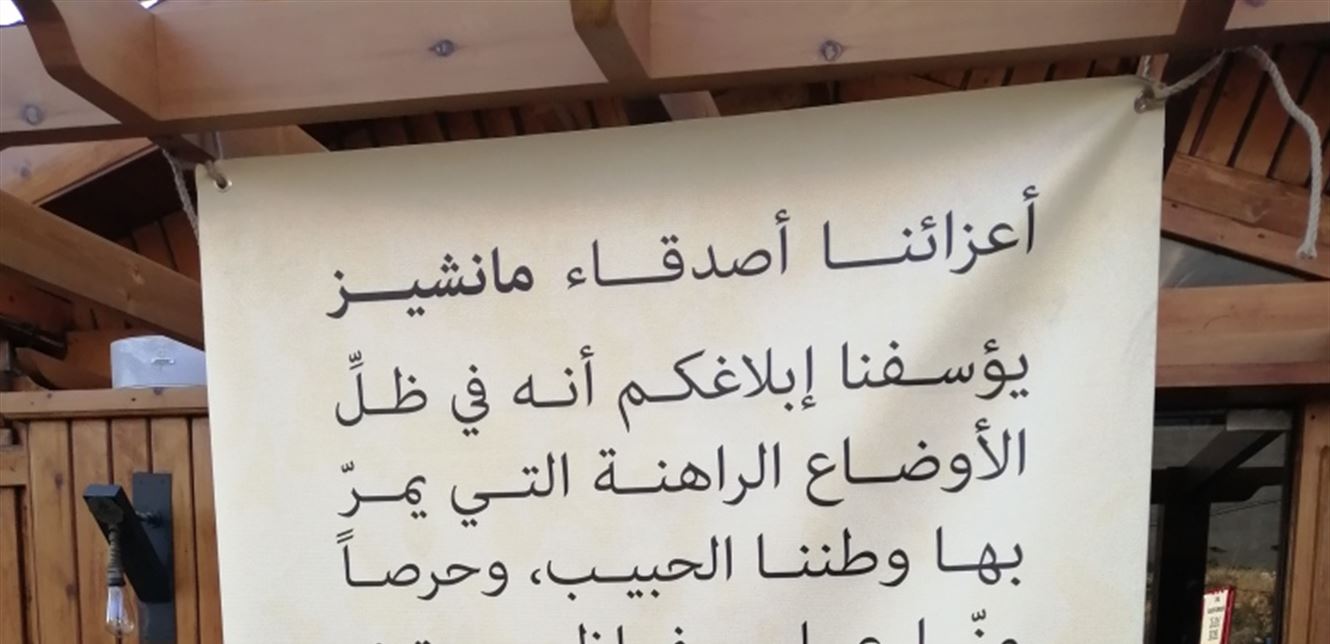 أعزائنا أصدقاء مانشيز
يؤسفنا إبلاغكم أنه في ظلِّ
الأوضاع الراهنة التي يمرّ
بها وطننا الحبيب، وحرصاً